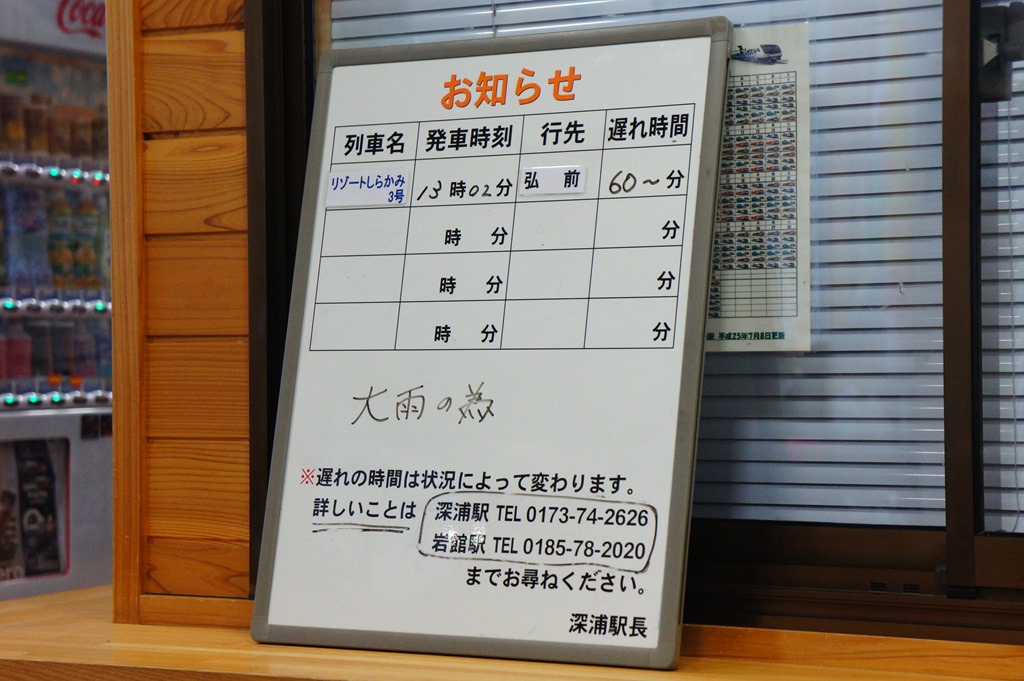 Coca
お知らせ
列車名 発車時刻 行先 遅れ時間
リゾートしらかみ
3号
13時02分 弘前 60〜分
時 分 分
時 分 分
時 分 分
大雨の為
※遅れの時間は状況によって変わります。
詳しいことは 深浦駅 TEL 0173-74-2626
岩館駅 TEL 0185-78-2020
までお尋ねください。
深浦駅長
平成25年7月8日更新